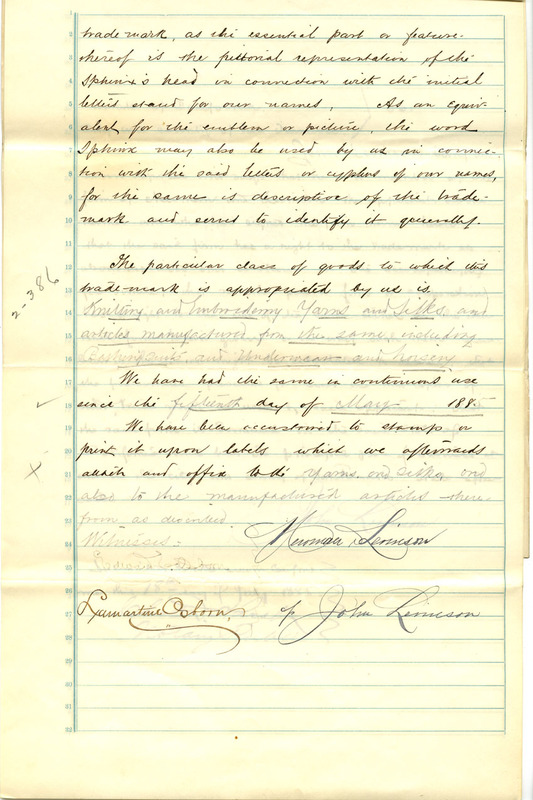 trade mark, as the essential part or feature
thereof is the pictorial representation of the
Sphinx's head in connection with the initial
letters stand for our names. As an equiv-
alent for the emblem or picture, the word
Sphinx may also be used by us in connec-
tion with the said letters or cyphers of our names,
for the same is descriptive of the trade-
mark and serves to identify it generally.
The particular class of goods to which this
trade-mark is appropriated by us is
Knitting and Embroidery Yarns and Silks, and
articles manufactured from the same, including
and Underwear and hosiery
We have had the same in continuous use
since the fifteenth day of May 1885
We have been accustomed to stamp or
print it upon labels which we afterwards
attach and affix to the yarns and silks and
also to the manufactured articles there-
from as described.
Witnesses:
Herman Levinson
Lamartine Osborn,
John Levinson
2-386
x
1
2
3
4
5
6
7
8
9
10
11
12
13
14
15
16
17
18
19
20
21
22
23
24
25
26
27
28
29
30
31
32